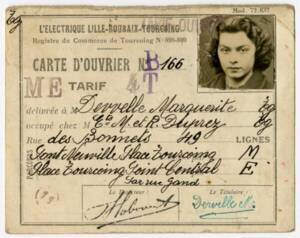 Mod. 72.627
L'ELECTRIQUE LILLE-ROUBAIX-TOURCOING
Registre du Commerce de Tourcoing N°
CARTE D'OUVRIER N° B 166
ME TARIF 4T
délivrée à Dervelle Marguerite
occupé chez M. et R. Duprez
Rue des Bonnets 49 LIGNES
Pont Neuville Place Tourcoing M
Place Tourcoing Point Central E
Le Directeur : Le Titulaire :
Dervelle M.